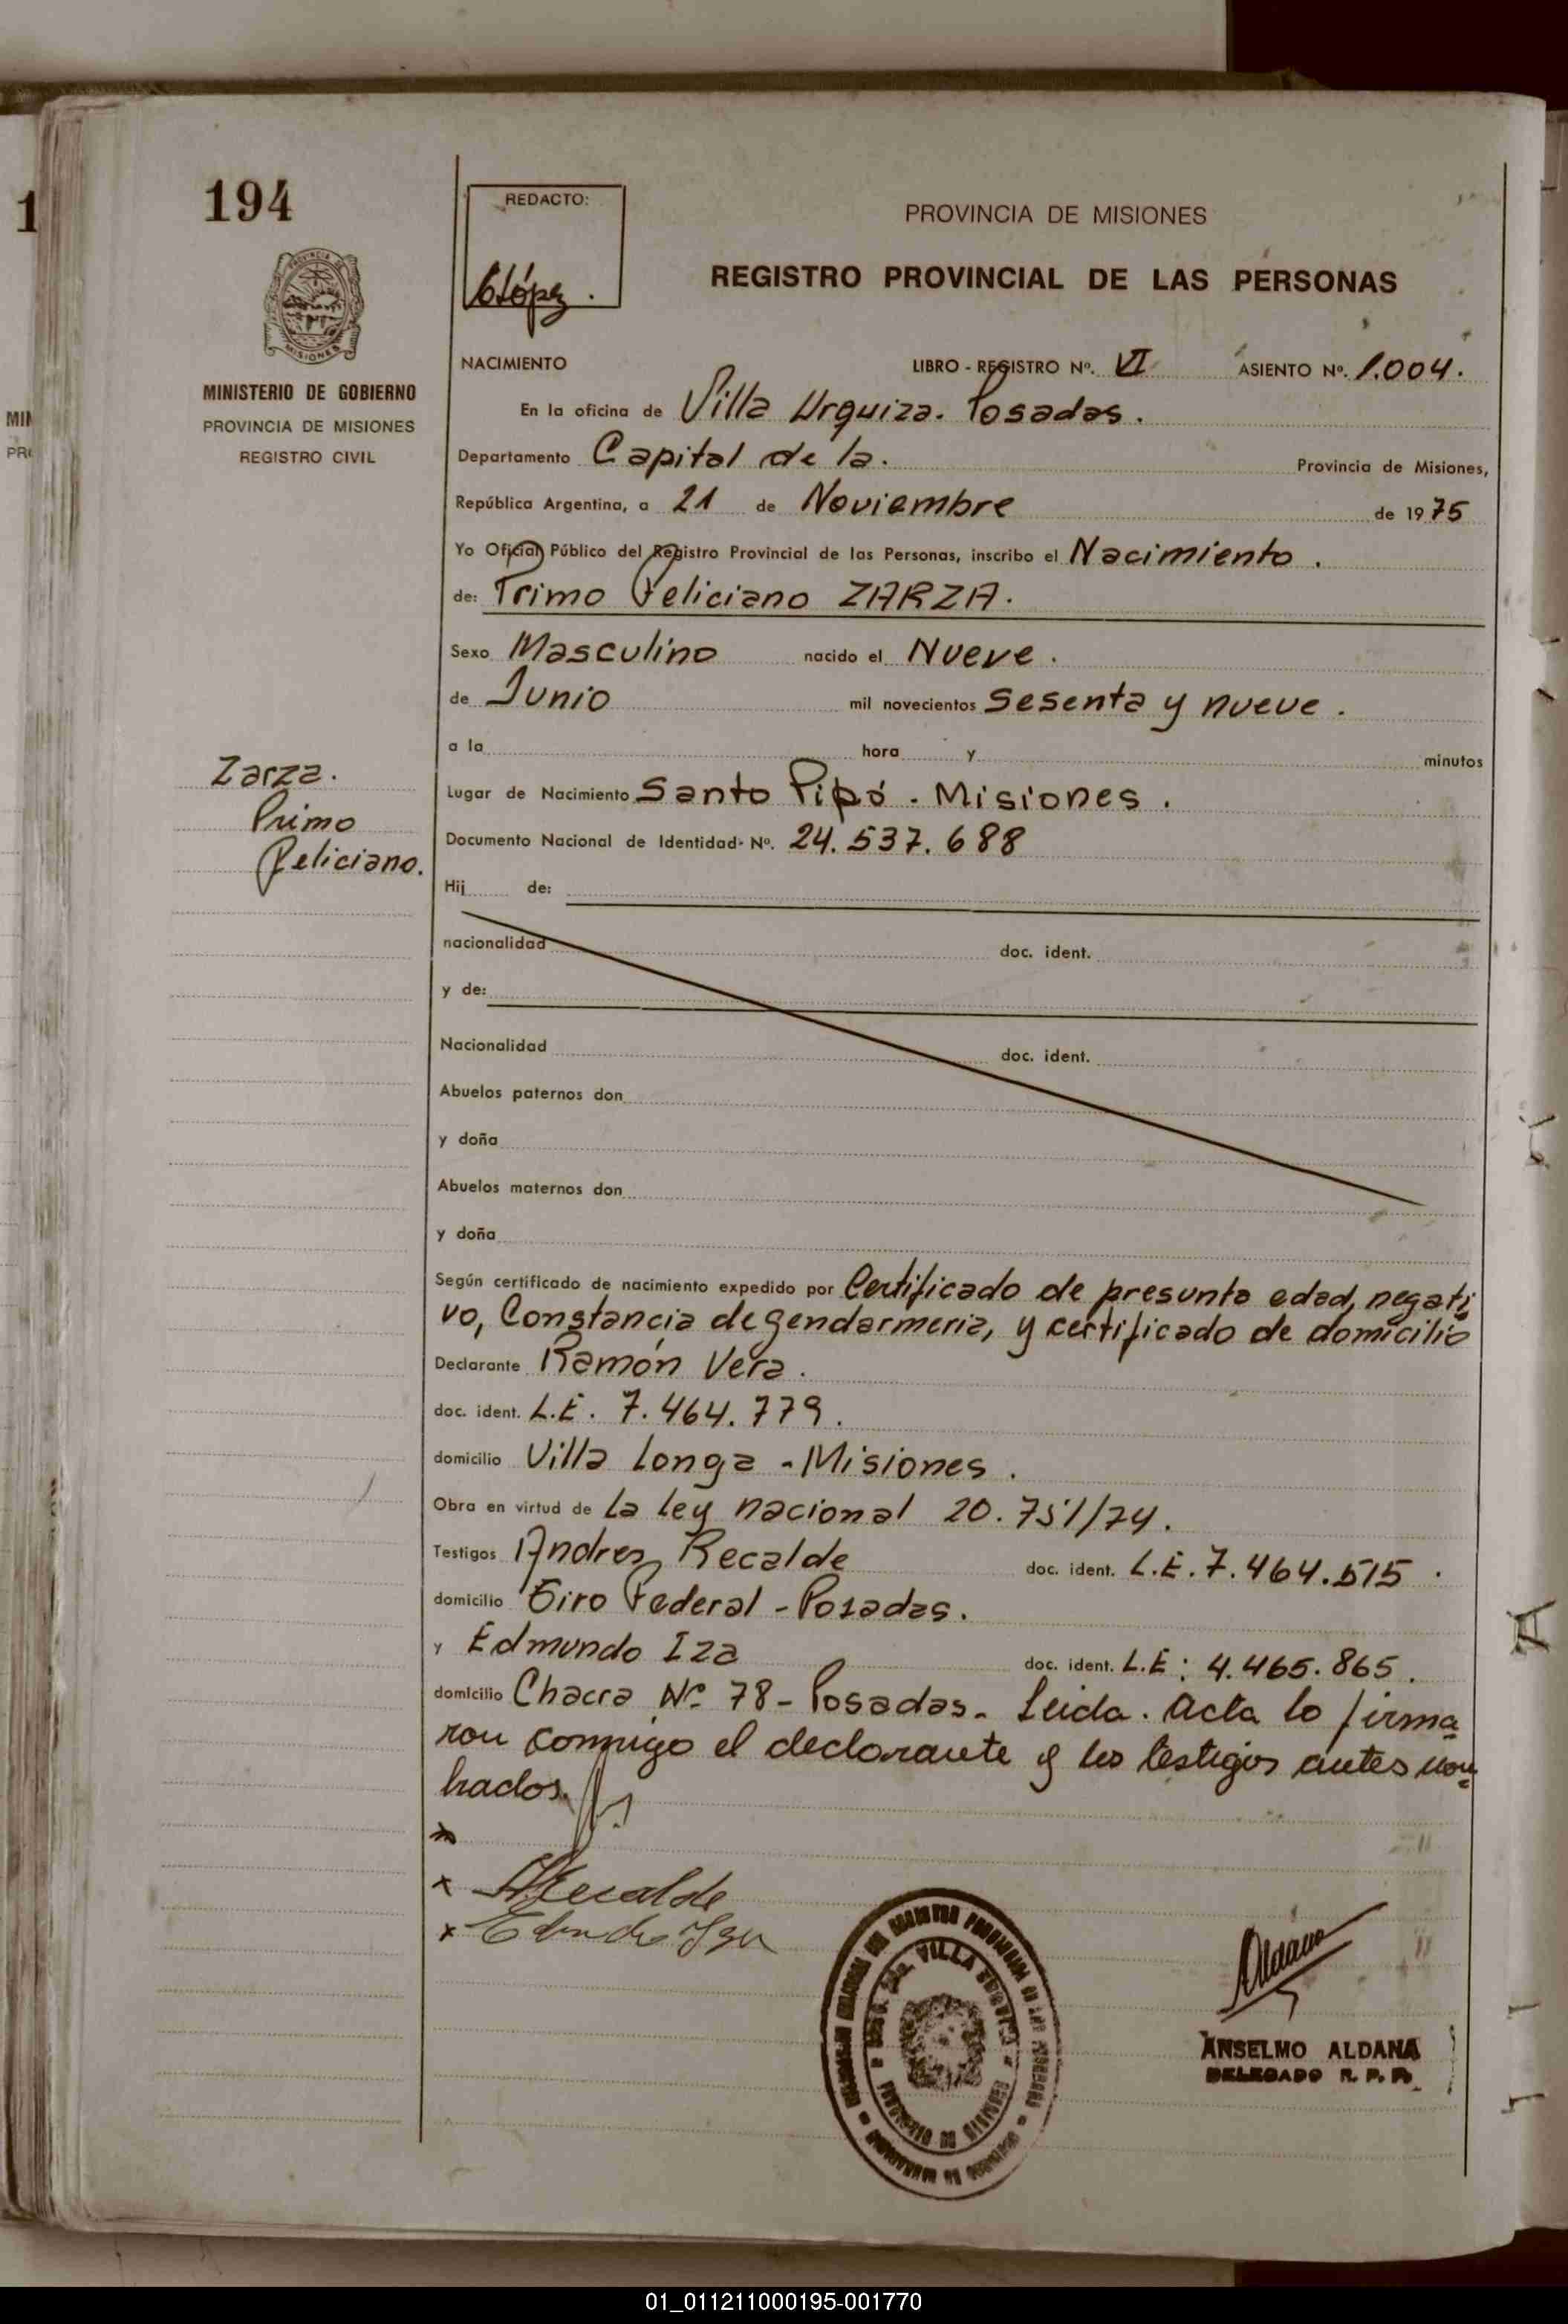 194
REDACTO:
López.
PROVINCIA DE MISIONES
REGISTRO PROVINCIAL DE LAS PERSONAS
PROVINCIA DE
MISIONES
MINISTERIO DE GOBIERNO
PROVINCIA DE MISIONES
REGISTRO CIVIL
NACIMIENTO LIBRO - REGISTRO Nº. VI ASIENTO Nº. 1.004.
En la oficina de Villa Urquiza. Posadas.
Departamento Capital de la. Provincia de Misiones,
República Argentina, a 21 de Noviembre de 1975
Yo Oficial Público del Registro Provincial de las Personas, inscribo el Nacimiento.
de: Primo Feliciano ZARZA.
Sexo Masculino nacido el Nueve.
de Junio mil novecientos Sesenta y nueve.
a la hora y minutos
Zarza.
Primo
Feliciano.
Lugar de Nacimiento Santo Pipó. Misiones.
Documento Nacional de Identidad. Nº. 24.537.688
Hij de:
nacionalidad doc. ident.
y de:
Nacionalidad doc. ident.
Abuelos paternos don
y doña
Abuelos maternos don
y doña
Según certificado de nacimiento expedido por Certificado de presunta edad, negati
vo, Constancia de gendarmeria, y certificado de domicilio
Declarante Ramón Vera.
doc. ident. L.E. 7.464.779.
domicilio Villa Longa - Misiones.
Obra en virtud de La ley nacional 20.751/74.
Testigos Andres Recalde doc. ident. L.E. 7.464.515.
domicilio Tiro Federal - Posadas.
y Edmundo Iza doc. ident. L.E: 4.465.865.
domicilio Chacra Nº 78 - Posadas. Leida. Acta lo firma
ron conmigo el declarante y los testigos antes nom
brados.
x
x Recalde
x
VILLA URQUIZA
PROVINCIA DE MISIONES
Aldana
ANSELMO ALDANA
DELEGADO R. P. P.
01_011211000195-001770